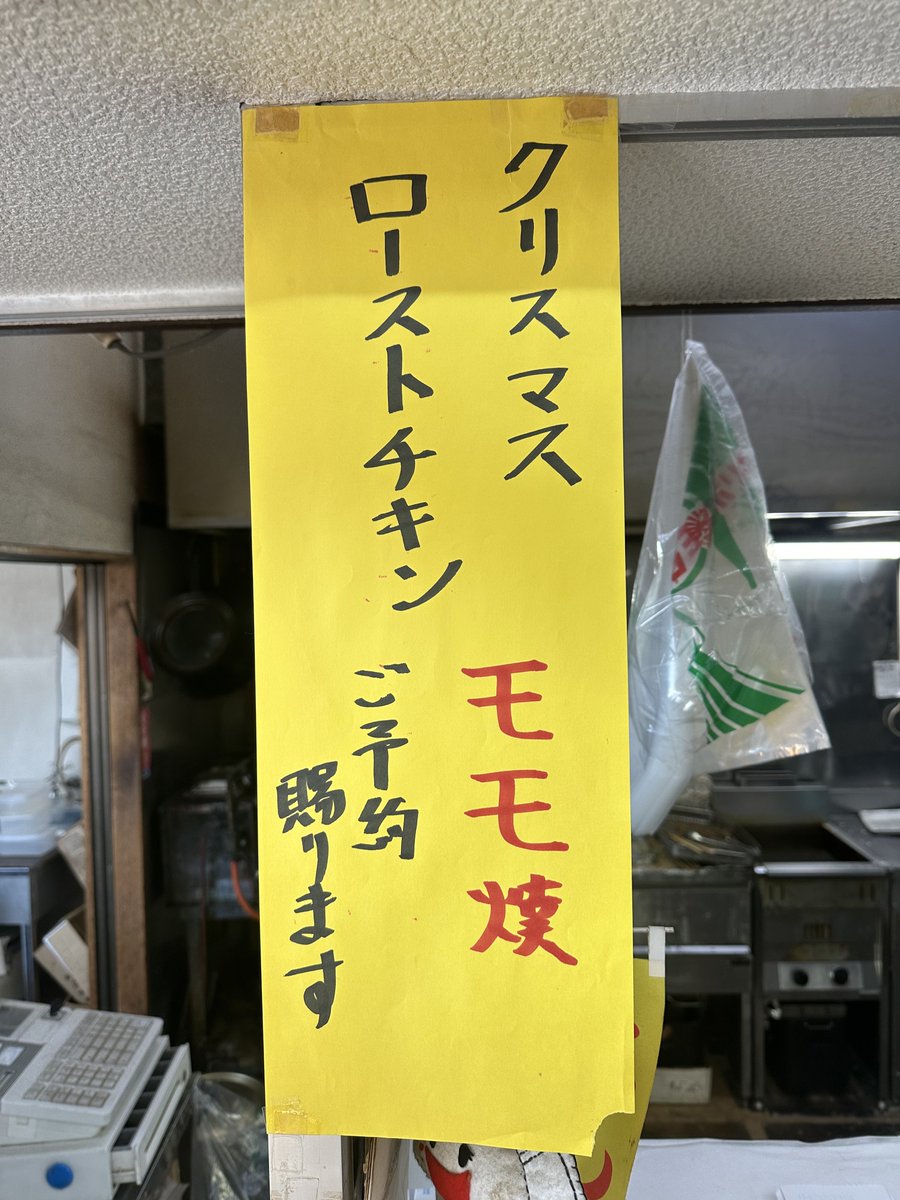 クリスマス モモ焼
ローストチキン ご予約
賜ります